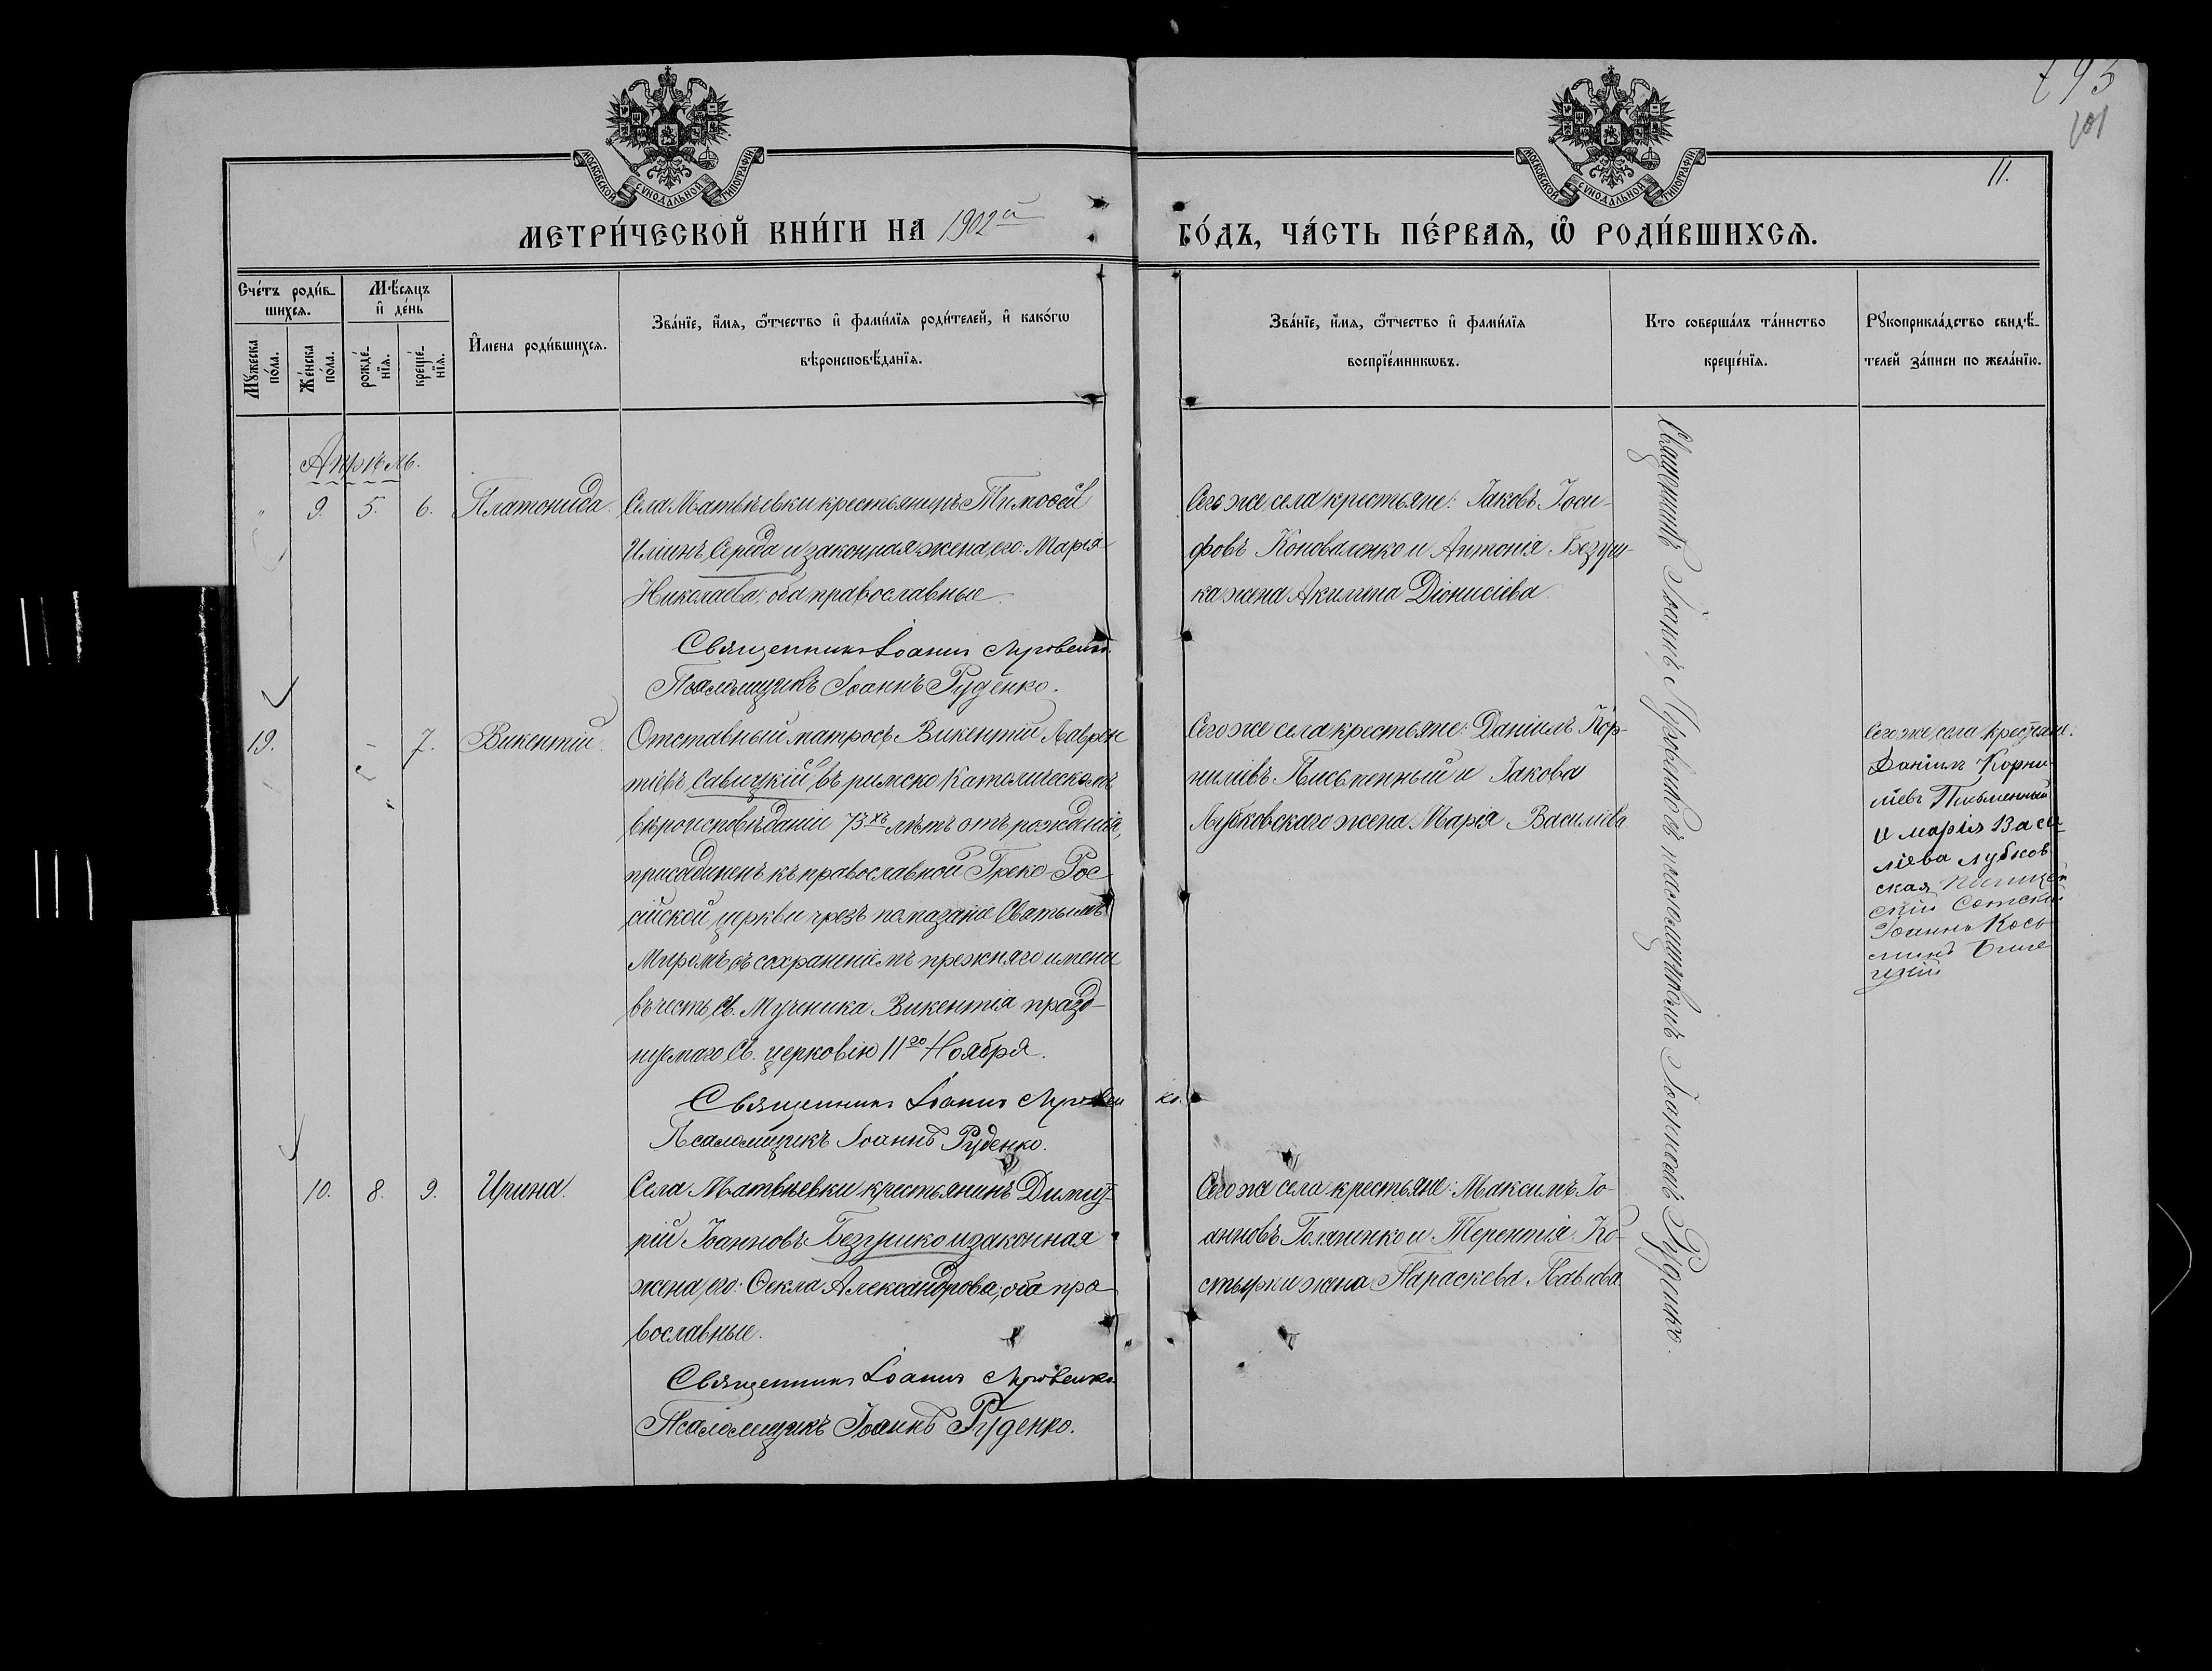 193
101
11.
МОСКОВСКОЙ СУНОДАЛЬНОЙ ТИПОГРАФІИ
МОСКОВСКОЙ СУНОДАЛЬНОЙ ТИПОГРАФІИ
МЕТРИ́ЧЕСКОЙ КНИ́ГИ НА 1902й
ГО́ДЪ, ЧА́СТЬ ПЕ́РВАѦ, Ѡ РОДИ́ВШИХСѦ.
Сче́тъ роди́в-
шихсѧ.
Мꙋ́жеска по́ла.
Же́нска по́ла.
Мѣ́сѧцъ
и҆ де́нь
рожде́-
нїѧ.
креще́-
нїѧ.
И҆мена роди́вшихсѧ.
Зва́нїе, и҆́мѧ, ѻ҆́тчество и҆ фами́лїѧ роди́телей, и҆ како́гѡ
вѣроисповѣ́данїѧ.
Зва́нїе, и҆́мѧ, ѻ҆́тчество и҆ фами́лїѧ
воспрїе́мникѡвъ.
Кто соверша́лъ та́инство
креще́нїѧ.
Рꙋкоприкла́дство свидѣ́-
телей за́писи по жела́нїю.
Апрѣль.
" 9. 5. 6. Платонида.
Села Матвѣевки крестьянинъ Тимоѳей
Иліинъ Середа и законная жена его: Марія
Николаева; оба православные.
Священникъ Іоаннъ
Псаломщикъ Іоаннъ Руденко.
Сего же села крестьяне: Іаковъ Іоси-
фовъ Коноваленко и Антонія Безуш-
ка жена Акилина Діонисіева.
19. - 7. Викентій.
Отставный матросъ Викентій Лаврен
тіевъ Савицкій въ римско Католическомъ
вѣроисповѣданіи 73хъ лѣтъ отъ рожденія,
присоединенъ къ православной Греко-Рос
сійской церкви чрезъ помазаніе Святымъ
Миромъ съ сохраненіемъ прежняго имени
въ честь Св. Мученика Викентія празд-
нуемаго Св. церковію 11го Ноября.
Священникъ Іоаннъ
Псаломщикъ Іоаннъ Руденко.
Сего же села крестьяне: Даніилъ Кор-
ниліевъ Письменный и Іакова
Лубковскаго жена Марія Василіева
Сего же села крестьяне:
Даніилъ Корни
ліевъ Письменный
и Марія Васи
ліева Лубков
ская
Сотскій
Іоаннъ Кось
минъ
10. 8. 9. Ирина.
Села Матвѣевки крестьянинъ Димит-
рій Іоанновъ Безушко и законная
жена его: Ѳекла Александрова; оба пра
вославные.
Священникъ Іоаннъ
Псаломщикъ Іоаннъ Руденко.
Сего же села крестьяне: Максимъ Іо-
анновъ и Терентія Ко-
стырки жена Параскева Павлова
Священникъ Іоаннъ съ псаломщикомъ Іоанномъ Руденко.